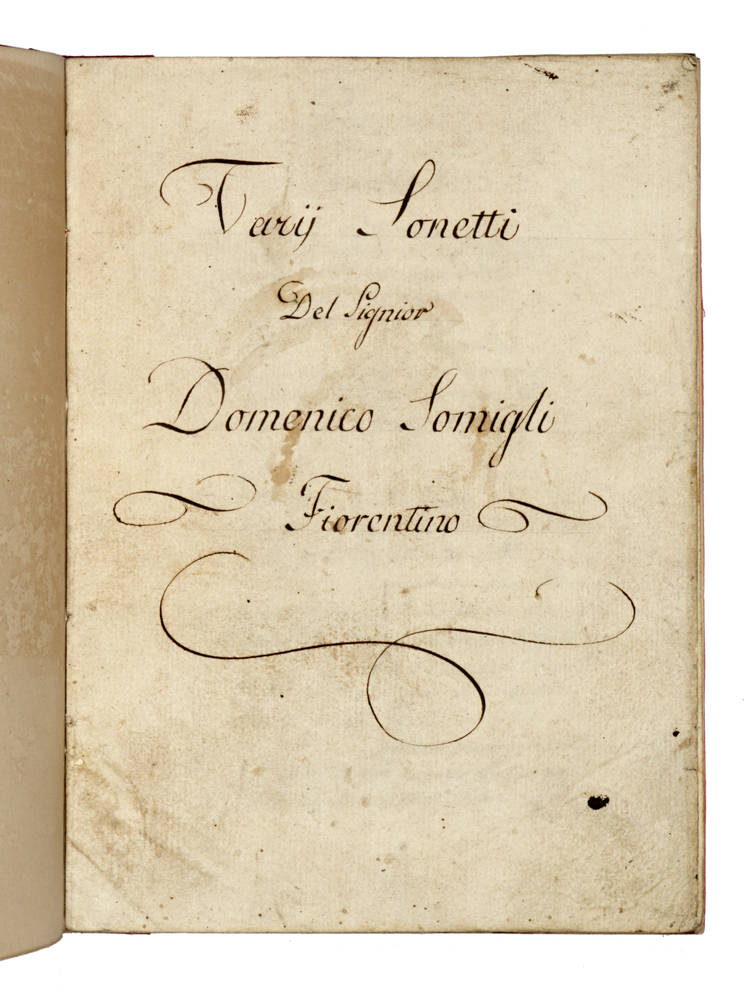 Varij Sonetti
Del Signior
Domenico Somigli
Fiorentino